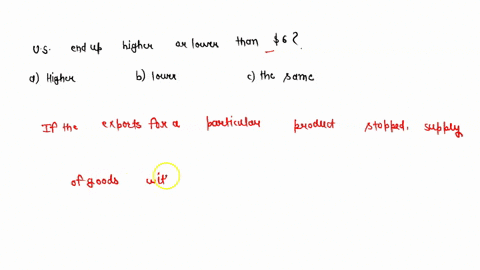 U.S. end up higher or lower than $6?.
a) Higher b) lower c) the same
If the exports for a particular product stopped, supply
of goods wit